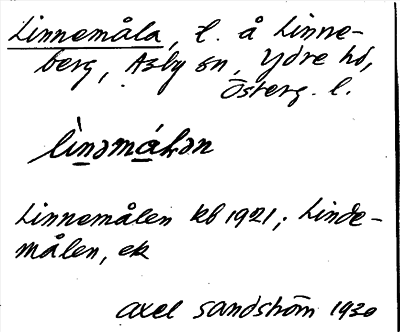 Linnemåla, t. å Linne-
berg, Asby sn, Ydre hd,
Österg. l.
lìnəmá̱lən
Linnemålen kb 1921; Linde-
målen, ek
Axel Sandström 1930